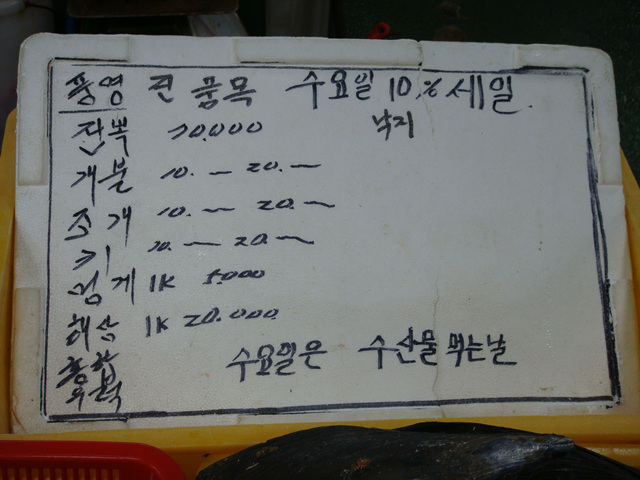 품명 전 품목 수요일 10% 세일.
낙지
전복 70.000
개불 10.~20.~
조개 10.~20.~
키 10.~20.~
멍게 1K 5.000
해삼 1K 20.000
홍합
수요일은 수산물 먹는날